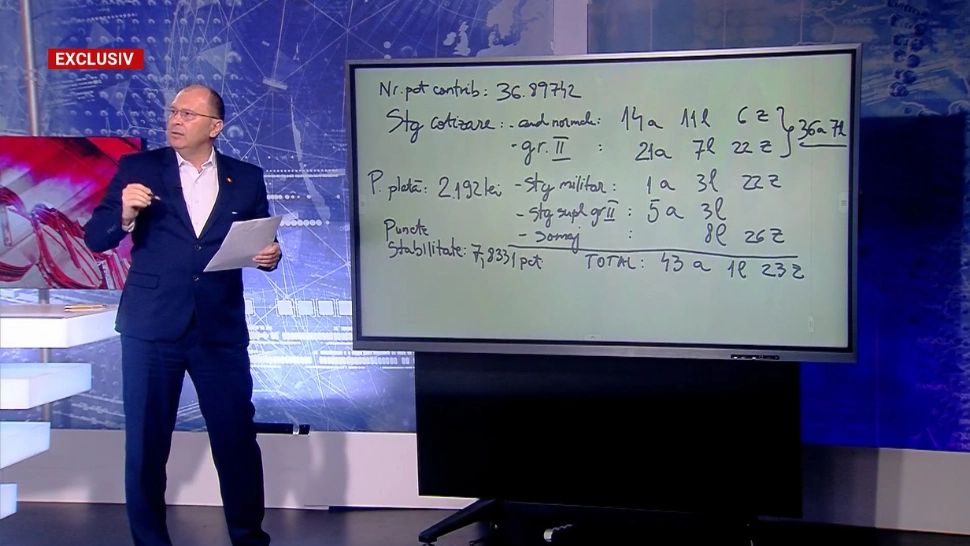 EXCLUSIV
Nr. pct contrib: 36.89742
Stg cotizare: - cond normale: 14a 11l 6z
- gr. II : 21a 7l 22z
36a 7l
P. plată: 2192 lei - Stg militar: 1a 3l 22z
- Stg supl gr II : 5a 3l
Puncte - Somaj : 8l 26z
Stabilitate: 7,8331 pct TOTAL: 43a 1l 23z
FRANCE